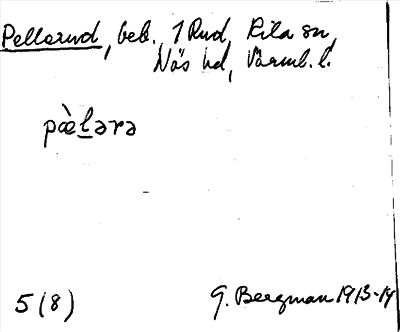 Pellerud, beb. 1 Rud, Kila sn,
Näs hd, Värml. l.
pæ̀lərə
5 (8)
G. Bergman 1913-14